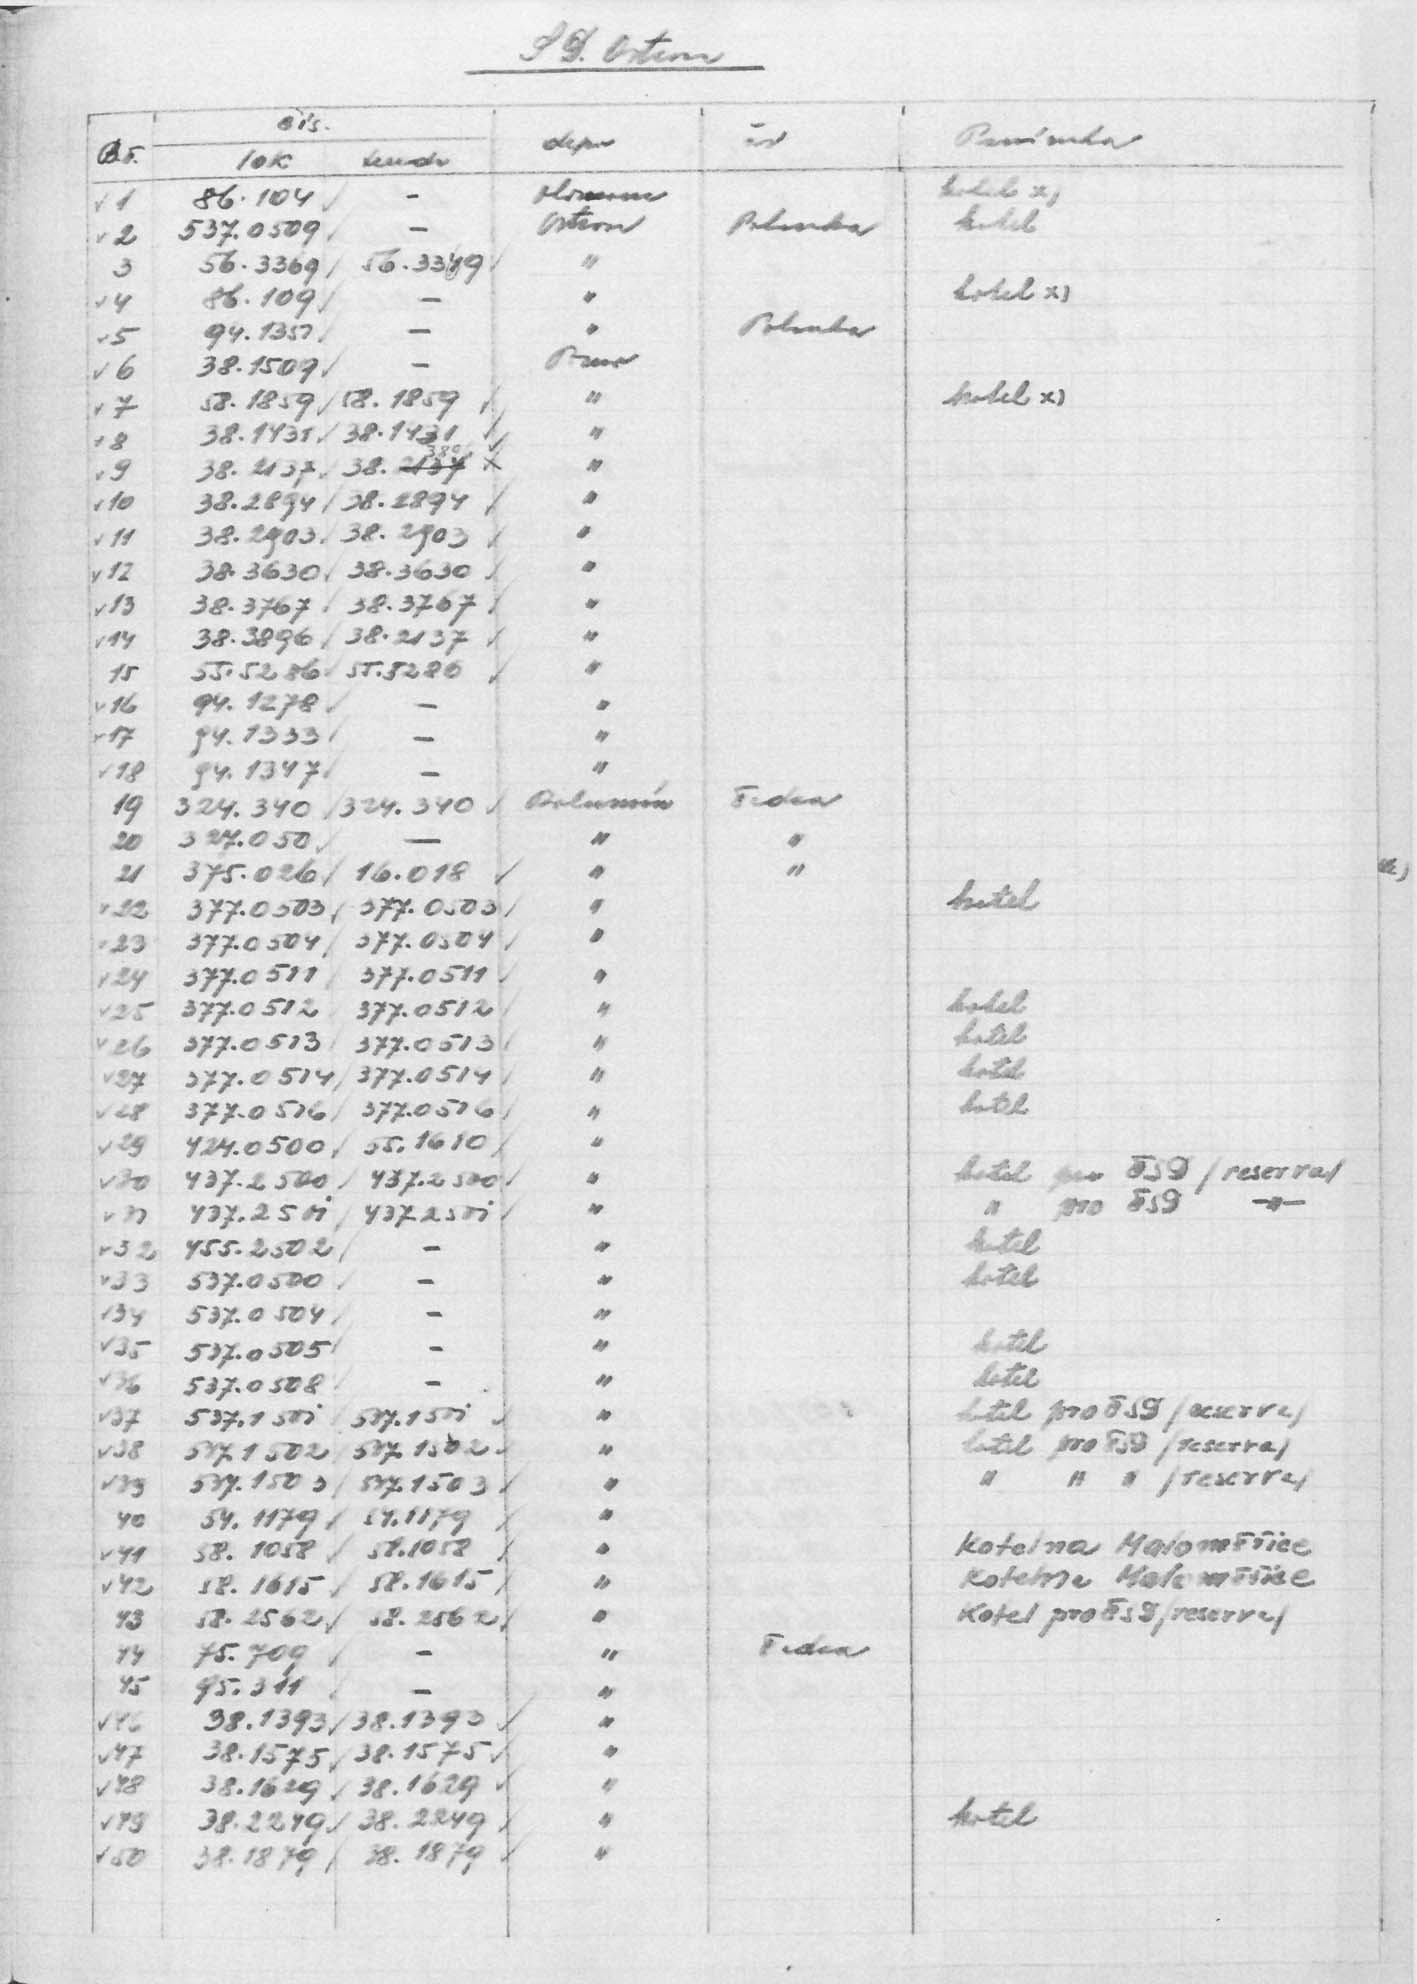 S D. Ostrov
čís.
B.č. lok tendr depo úsč Poznámka
v 1 86.104 / - Olomouc kotel x)
v 2 537.0509 / - Ostrov Polanka kotel
3 56.3369 / 56.3349 / "
v 4 86.109 / - " kotel x)
v 5 94.1351 / - " Polanka
v 6 38.1509 / -
v 7 58.1859 / 58.1859 / " kotel x)
v 8 38.1431 / 38.1431 / "
v 9 38.2137 / 38. 2137 x "
v 10 38.2894 / 38.2894 / "
v 11 38.2903 / 38.2903 / "
v 12 38.3630 / 38.3630 / "
v 13 38.3767 / 38.3767 / "
v 14 38.3896 / 38.2137 / "
15 55.5286 / 55.5286 / "
v 16 94.1278 / - "
v 17 94.1333 / - "
v 18 94.1347 / - "
19 324.340 / 324.340 / Bohumín
20 327.050 / - " "
21 375.026 / 16.018 / " "
v 22 377.0503 / 377.0503 / " kotel
v 23 377.0504 / 377.0504 / "
v 24 377.0511 / 377.0511 / "
v 25 377.0512 / 377.0512 / " kotel
v 26 377.0513 / 377.0513 / " kotel
v 27 377.0514 / 377.0514 / " kotel
v 28 377.0516 / 377.0516 / " kotel
v 29 424.0500 / 55.1610 / "
v 30 437.2500 / 437.2500 / " kotel pro ČSD /reserva/
v 31 437.2501 / 437.2501 / " " pro ČSD -"-
v 32 455.2502 / - " kotel
v 33 537.0500 / - " kotel
v 34 537.0504 / - "
v 35 537.0505 / - " kotel
v 36 537.0508 / - " kotel
v 37 537.1501 / 537.1501 / " kotel pro ČSD /reserva/
v 38 537.1502 / 537.1502 / " kotel pro ČSD /reserva/
v 39 537.1503 / 537.1503 / " " " " /reserva/
40 54.1179 / 54.1179 / "
v 41 58.1058 / 58.1058 / " Kotelna Maloměřice
v 42 58.1615 / 58.1615 / " Kotelna Maloměřice
43 58.2562 / 58.2562 / " Kotel pro ČSD /reserva/
44 75.709 / - "
45 95.311 / - "
v 46 38.1393 / 38.1393 / "
v 47 38.1575 / 38.1575 / "
v 48 38.1629 / 38.1629 / "
v 49 38.2249 / 38.2249 / " kotel
v 50 38.1879 / 38.1879 / "